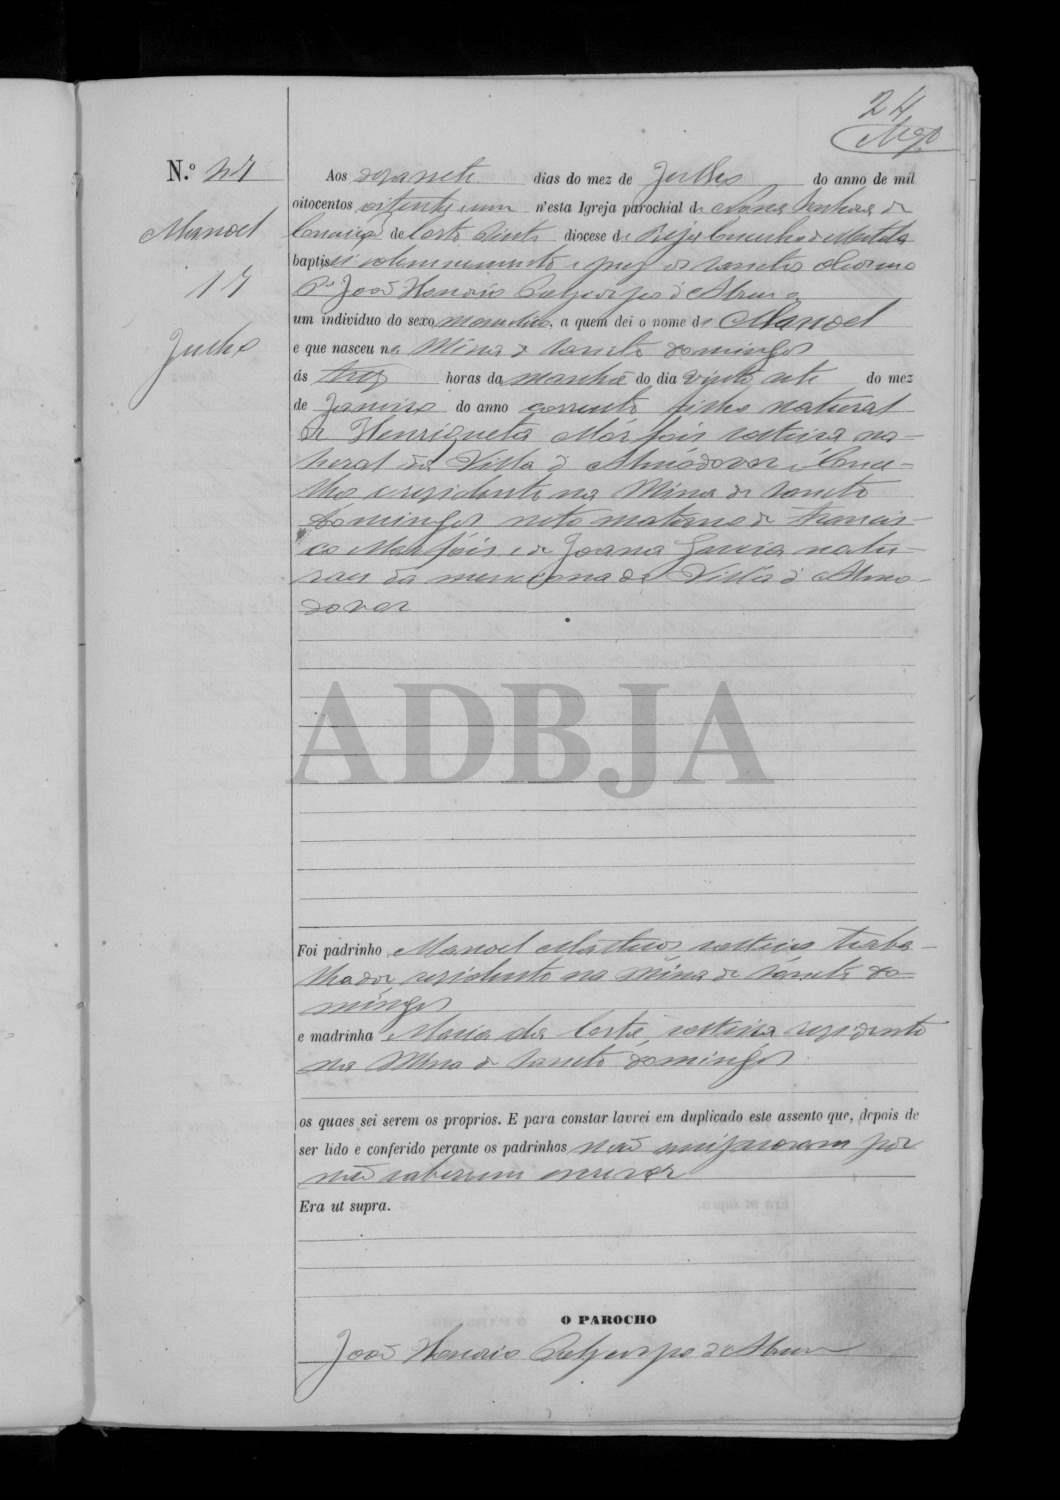 24
N.º 47
Manoel
17
Julho
Aos desasete dias do mez de Julho do anno de mil
oitocentos oitenta e um n'esta Igreja parochial de Nossa Senhora da
Conceição de Corte Pinto diocese de Beja Concelho de Mertola
baptisei solemnemente e puz os sanctos oleos eu
Pe João Honorio d'Abreu
um individuo do sexo masculino, a quem dei o nome de Manoel
e que nasceu na Mina de Sancto Domingos
ás tres horas da manhã do dia vinte sete do mez
de Janeiro do anno corrente filho natural
de Henriqueta solteira na-
tural da Villa d'Almodovar Conce-
lho residente na Mina de Sancto
Domingos neto materno de Francis-
co e de Joana Garcia natu-
raes da mencionada Villa d'Almo-
dovar
ADBJA
Foi padrinho Manoel Martins solteiro traba-
lhador residente na Mina de Sancto Do-
mingos
e madrinha Maria da Corte, solteira residente
na Mina de Sancto Domingos
os quaes sei serem os proprios. E para constar lavrei em duplicado este assento que, depois de
ser lido e conferido perante os padrinhos não assignaram por
não saberem escrever
Era ut supra.
O PAROCHO
João Honorio d'Abreu